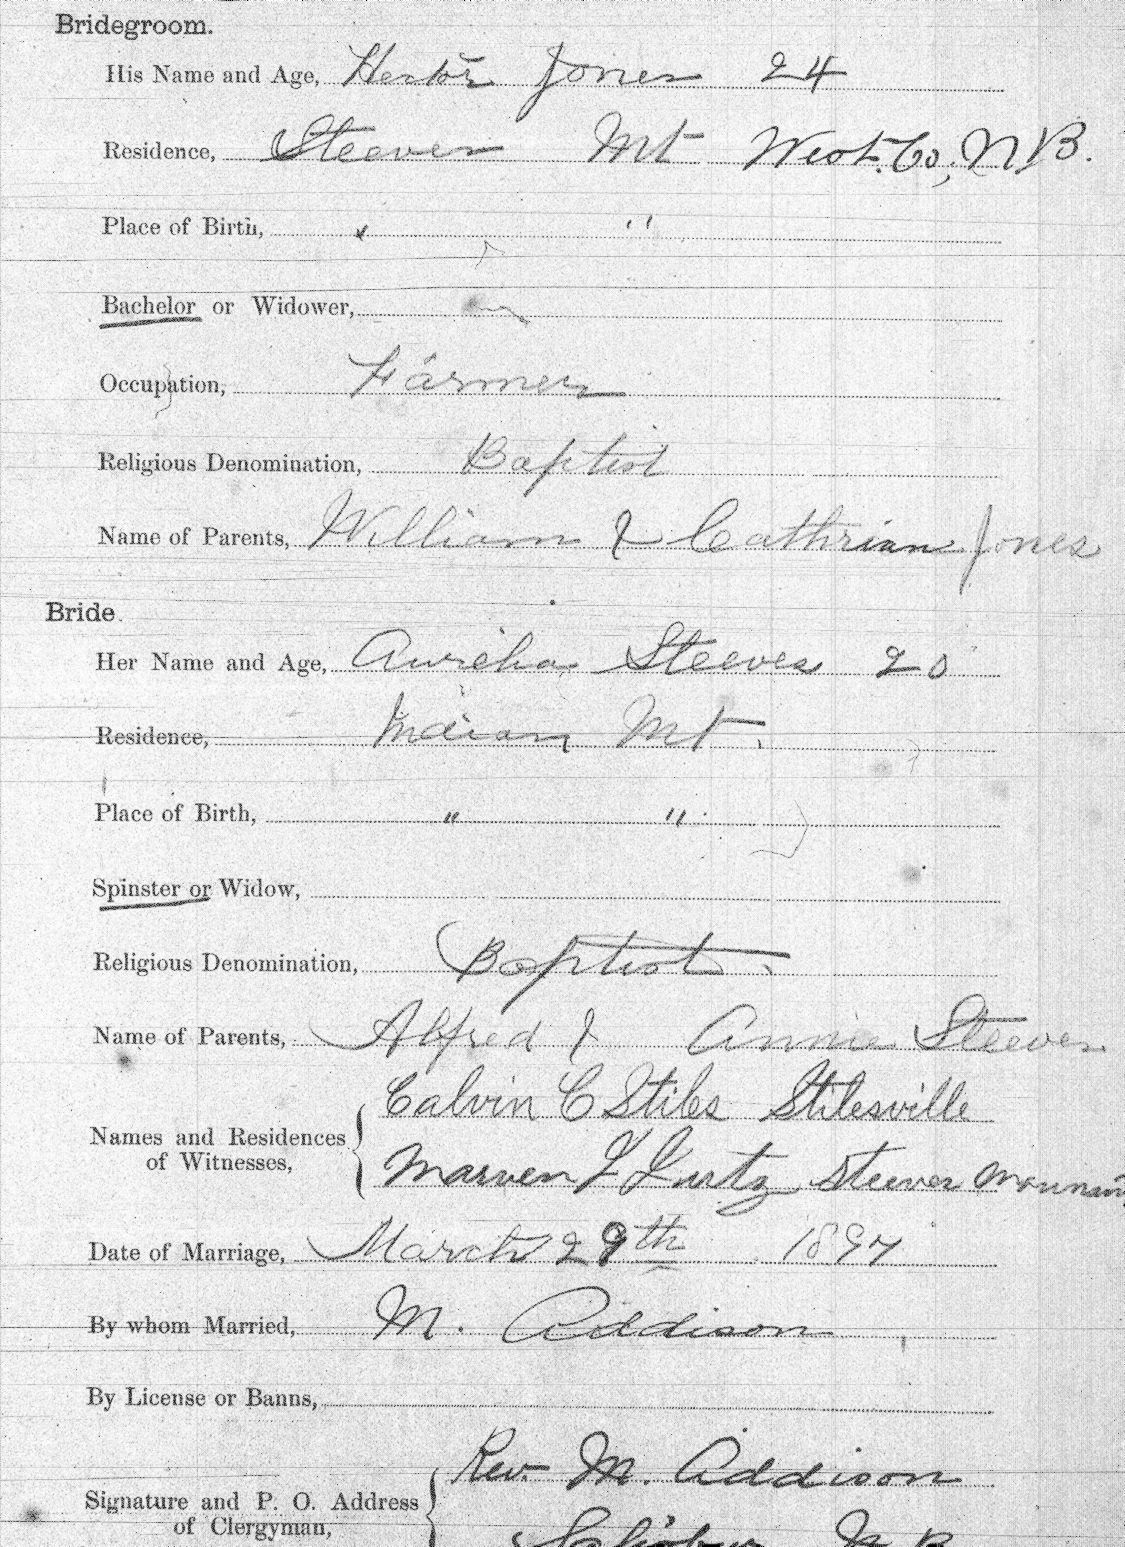 Bridegroom.
His Name and Age, Hector Jones 24
Residence, Steeves Mt West. Co, N.B.
Place of Birth, " "
Bachelor or Widower,
Occupation, Farmer
Religious Denomination, Baptist
Name of Parents, William & Cathrian Jones
Bride.
Her Name and Age, Aurelia Steeves 20
Residence, Indian Mt.
Place of Birth, " "
Spinster or Widow,
Religious Denomination, Baptist.
Name of Parents, Alfred & Annie Steeves
Calvin C Stiles Stilesville
Names and Residences
of Witnesses,
Marven F Lutz Steeves Mountain
Date of Marriage, March 29th 1897
By whom Married, M. Addison
By License or Banns,
Rev. M. Addison
Signature and P. O. Address
of Clergyman,
Salisbury N.B.